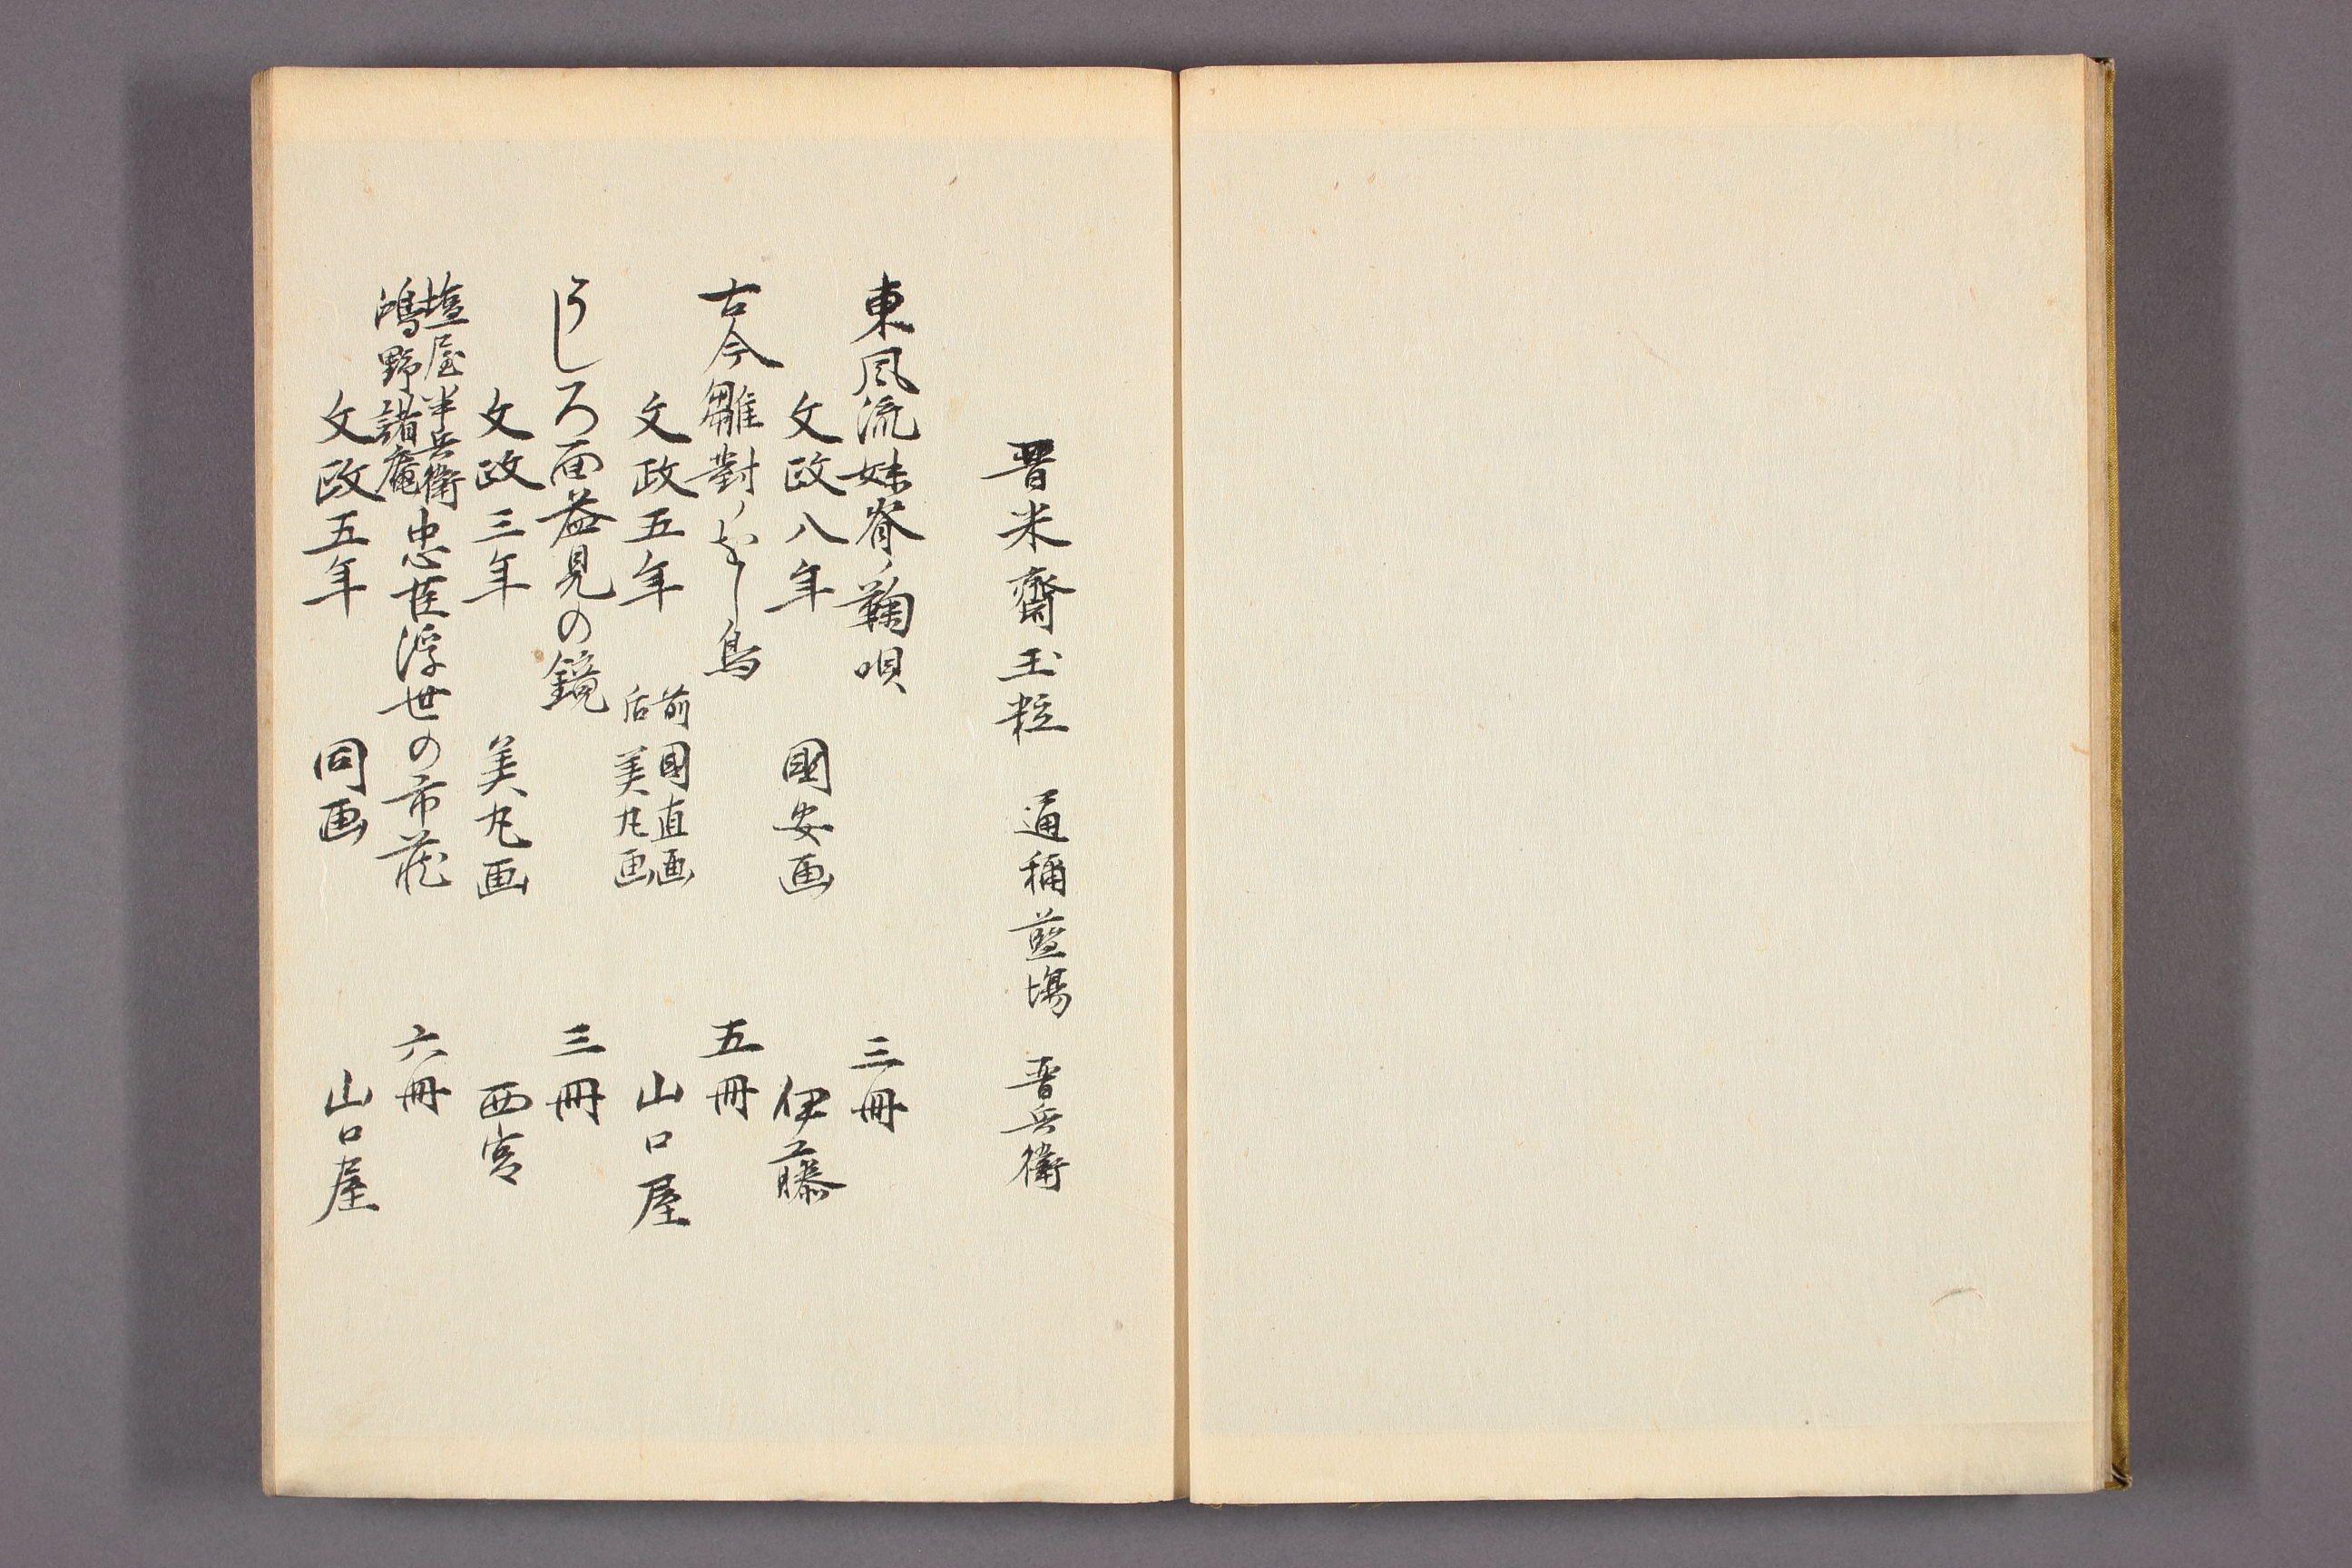 晋米齋玉粒　通稱藍塲　晋兵衛
東風流妹脊ノ鞠唄　三冊
文政八年　國安画　伊藤
古今雛對ノをし鳥　五冊
文政五年　前國直画　后美丸画　山口屋
うしろ面益見の鏡　三冊
文政三年　美丸画　西宮
塩屋半兵衛　鴻野諸庵　忠臣浮世の市蔵　六冊
文政五年　同画　山口屋